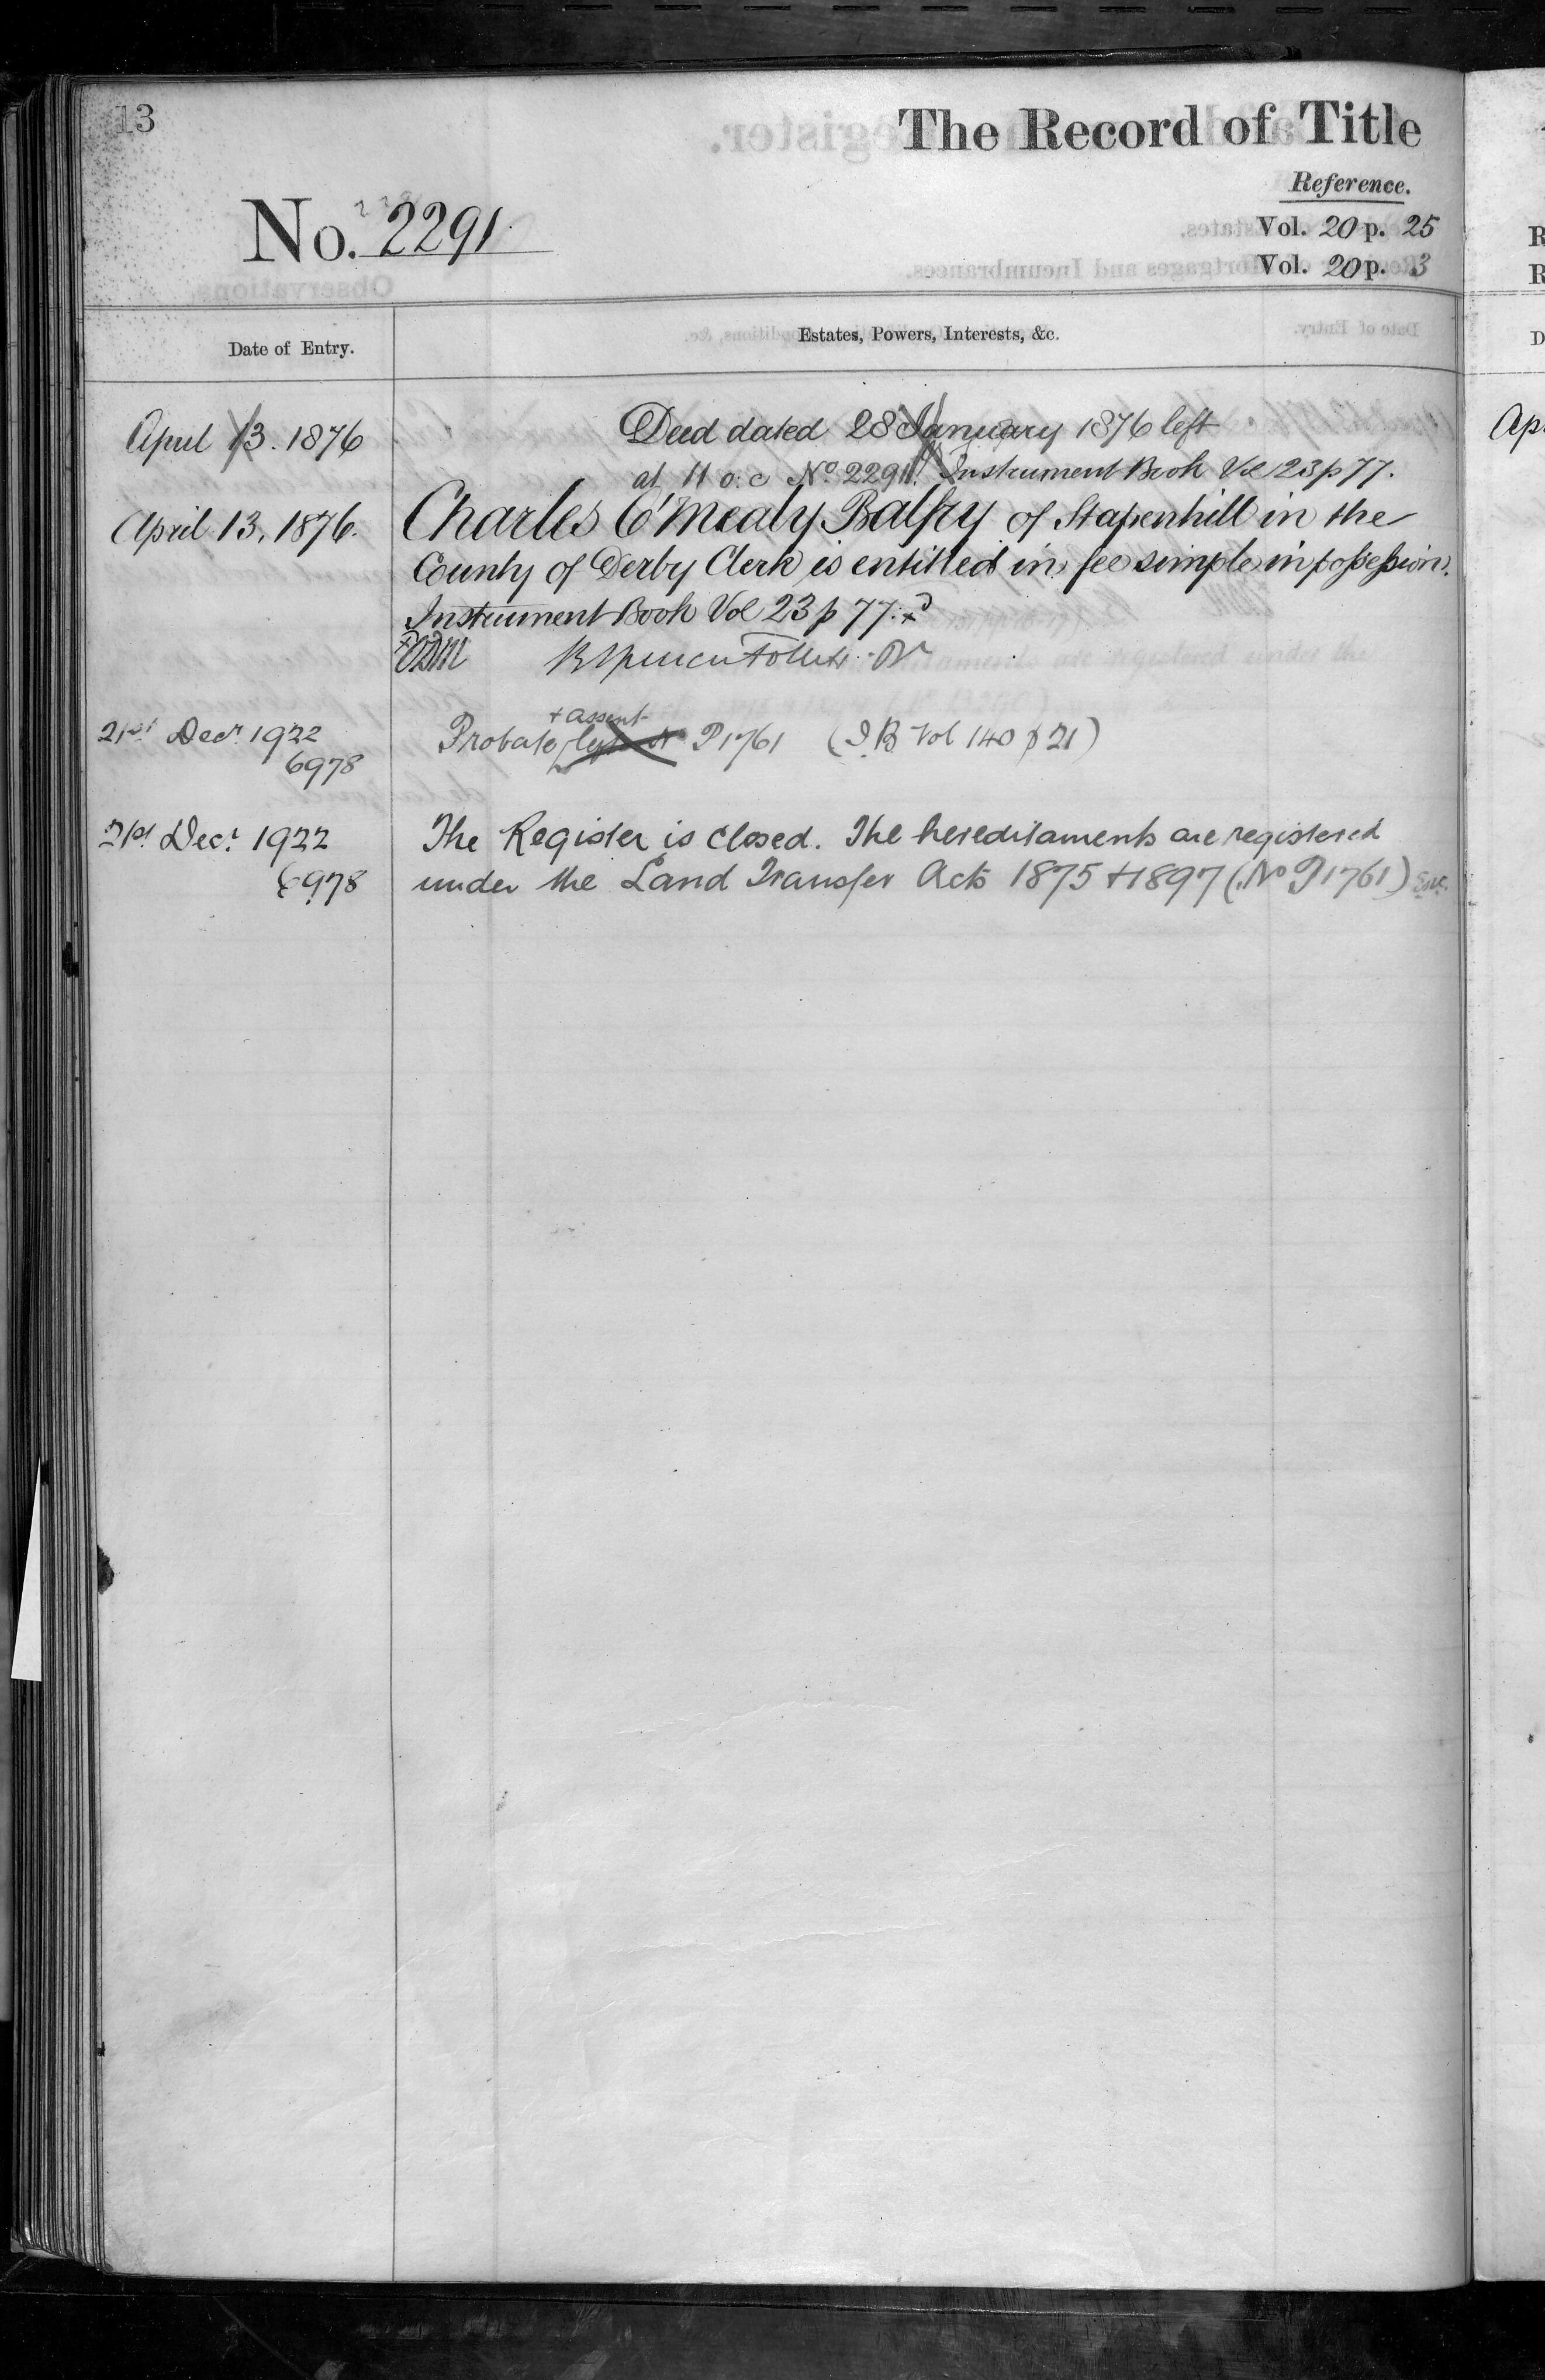 13
The Record of Title
Reference.
No. 2291
Vol. 20 p. 25
Vol. 20 p. 3
Date of Entry.
Estates, Powers, Interests, &c.
April 13. 1876
Deed dated 28 January 1876 left
at 11 o.c No. 2291. Instrument Book Vol 23 p 77.
April 13, 1876.
Charles O'Mealy Balfry of Stapenhill in the
County of Derby Clerk is entitled in fee simple in possession.
Instrument Book Vol 23 p 77.
21st Decr 1922
6978
+ assent
Probate P1761 (I.B. Vol 140 p 21)
21st Decr 1922
6978
The Register is closed. The hereditaments are registered
under the Land Transfer Acts 1875 + 1897 (No P1761)